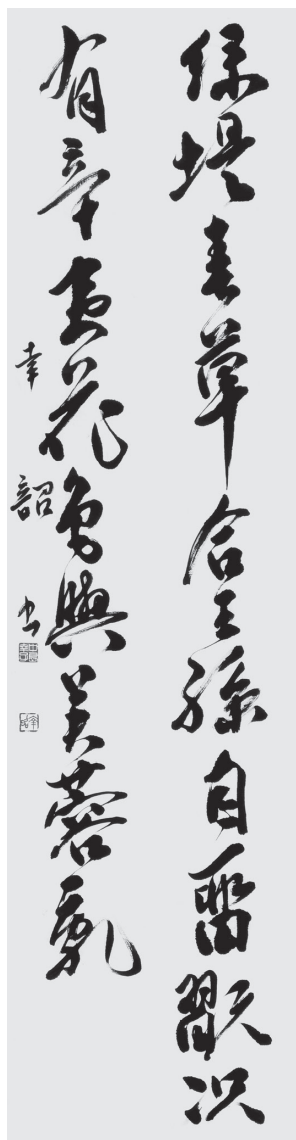 綠堤春草合王孫自留翫況
有辛夷花色與芙蓉亂
幸韶書